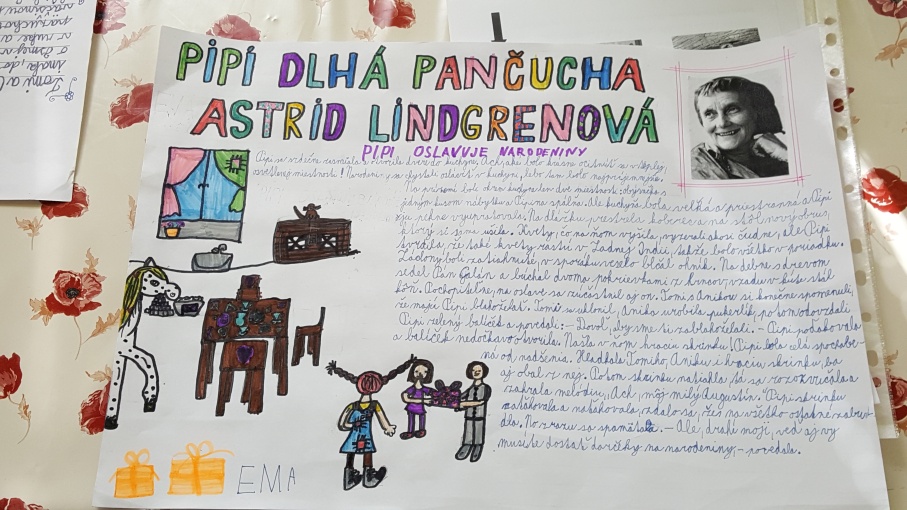 PIPI DLHÁ PANČUCHA
ASTRID LINDGRENOVÁ
PIPI OSLAVUJE NARODENINY
Pipi sa vrhla otvorila dvere do kuchyne. Ach, ako bolo krásne ocitnúť sa v teplej,
osvetlenej miestnosti! Narodeniny sa chystali osláviť v kuchyni, lebo tam bolo najpríjemnejšie.
Na prízemí boli okrem kuchyne len dve miestnosti: obývačka s
jedným kusom nábytku a Pipina spálňa. Ale kuchyňa bola veľká a priestranná a Pipi
ju pekne vyupratovala. Na dlážku prestrela koberce a na stôl nový obrus,
ktorý si sama ušila. Kvety, čo na ňom vyšila, vyzerali akosi čudne, ale Pipi
tvrdila, že také kvety rastú v Zadnej Indii, takže bolo všetko v poriadku.
Záclony boli zatiahnuté, v sporáku veselo blčal ohník. Na debne s drevom
sedel Pán Celson a búchal dvoma pokrievkami z hrncov, vzadu v kúte stál
kôň. Pochopiteľne, na oslave sa zúčastnil aj on. Tomi s Anikou si konečne spomenuli,
že majú Pipi blahoželať. Tomi sa uklonil, Anika urobila pukerlík, potom odovzdali
Pipi zelený balíček a povedali: – Dovoľ, aby sme ti zablahoželali. – Pipi poďakovala
a balíček nedočkavo otvorila. Našla v ňom hraciu skrinku! Pipi bola celá spochabe-
ná od nadšenia. Hladkala Tomiho, Aniku i hraciu skrinku, ba
aj obal z nej. Potom skrinku natiahla, tá sa rozozvučala a
zahrala melódiu „Ach, môj milý Augustín.“ Pipi skrinku
naťahovala a naťahovala, zdalo sa, že na všetko ostatné zabud-
dla. No zrazu sa spamätala. – Ale, drahí moji, veď aj vy
musíte dostať darčeky na narodeniny, – povedala.
EMA